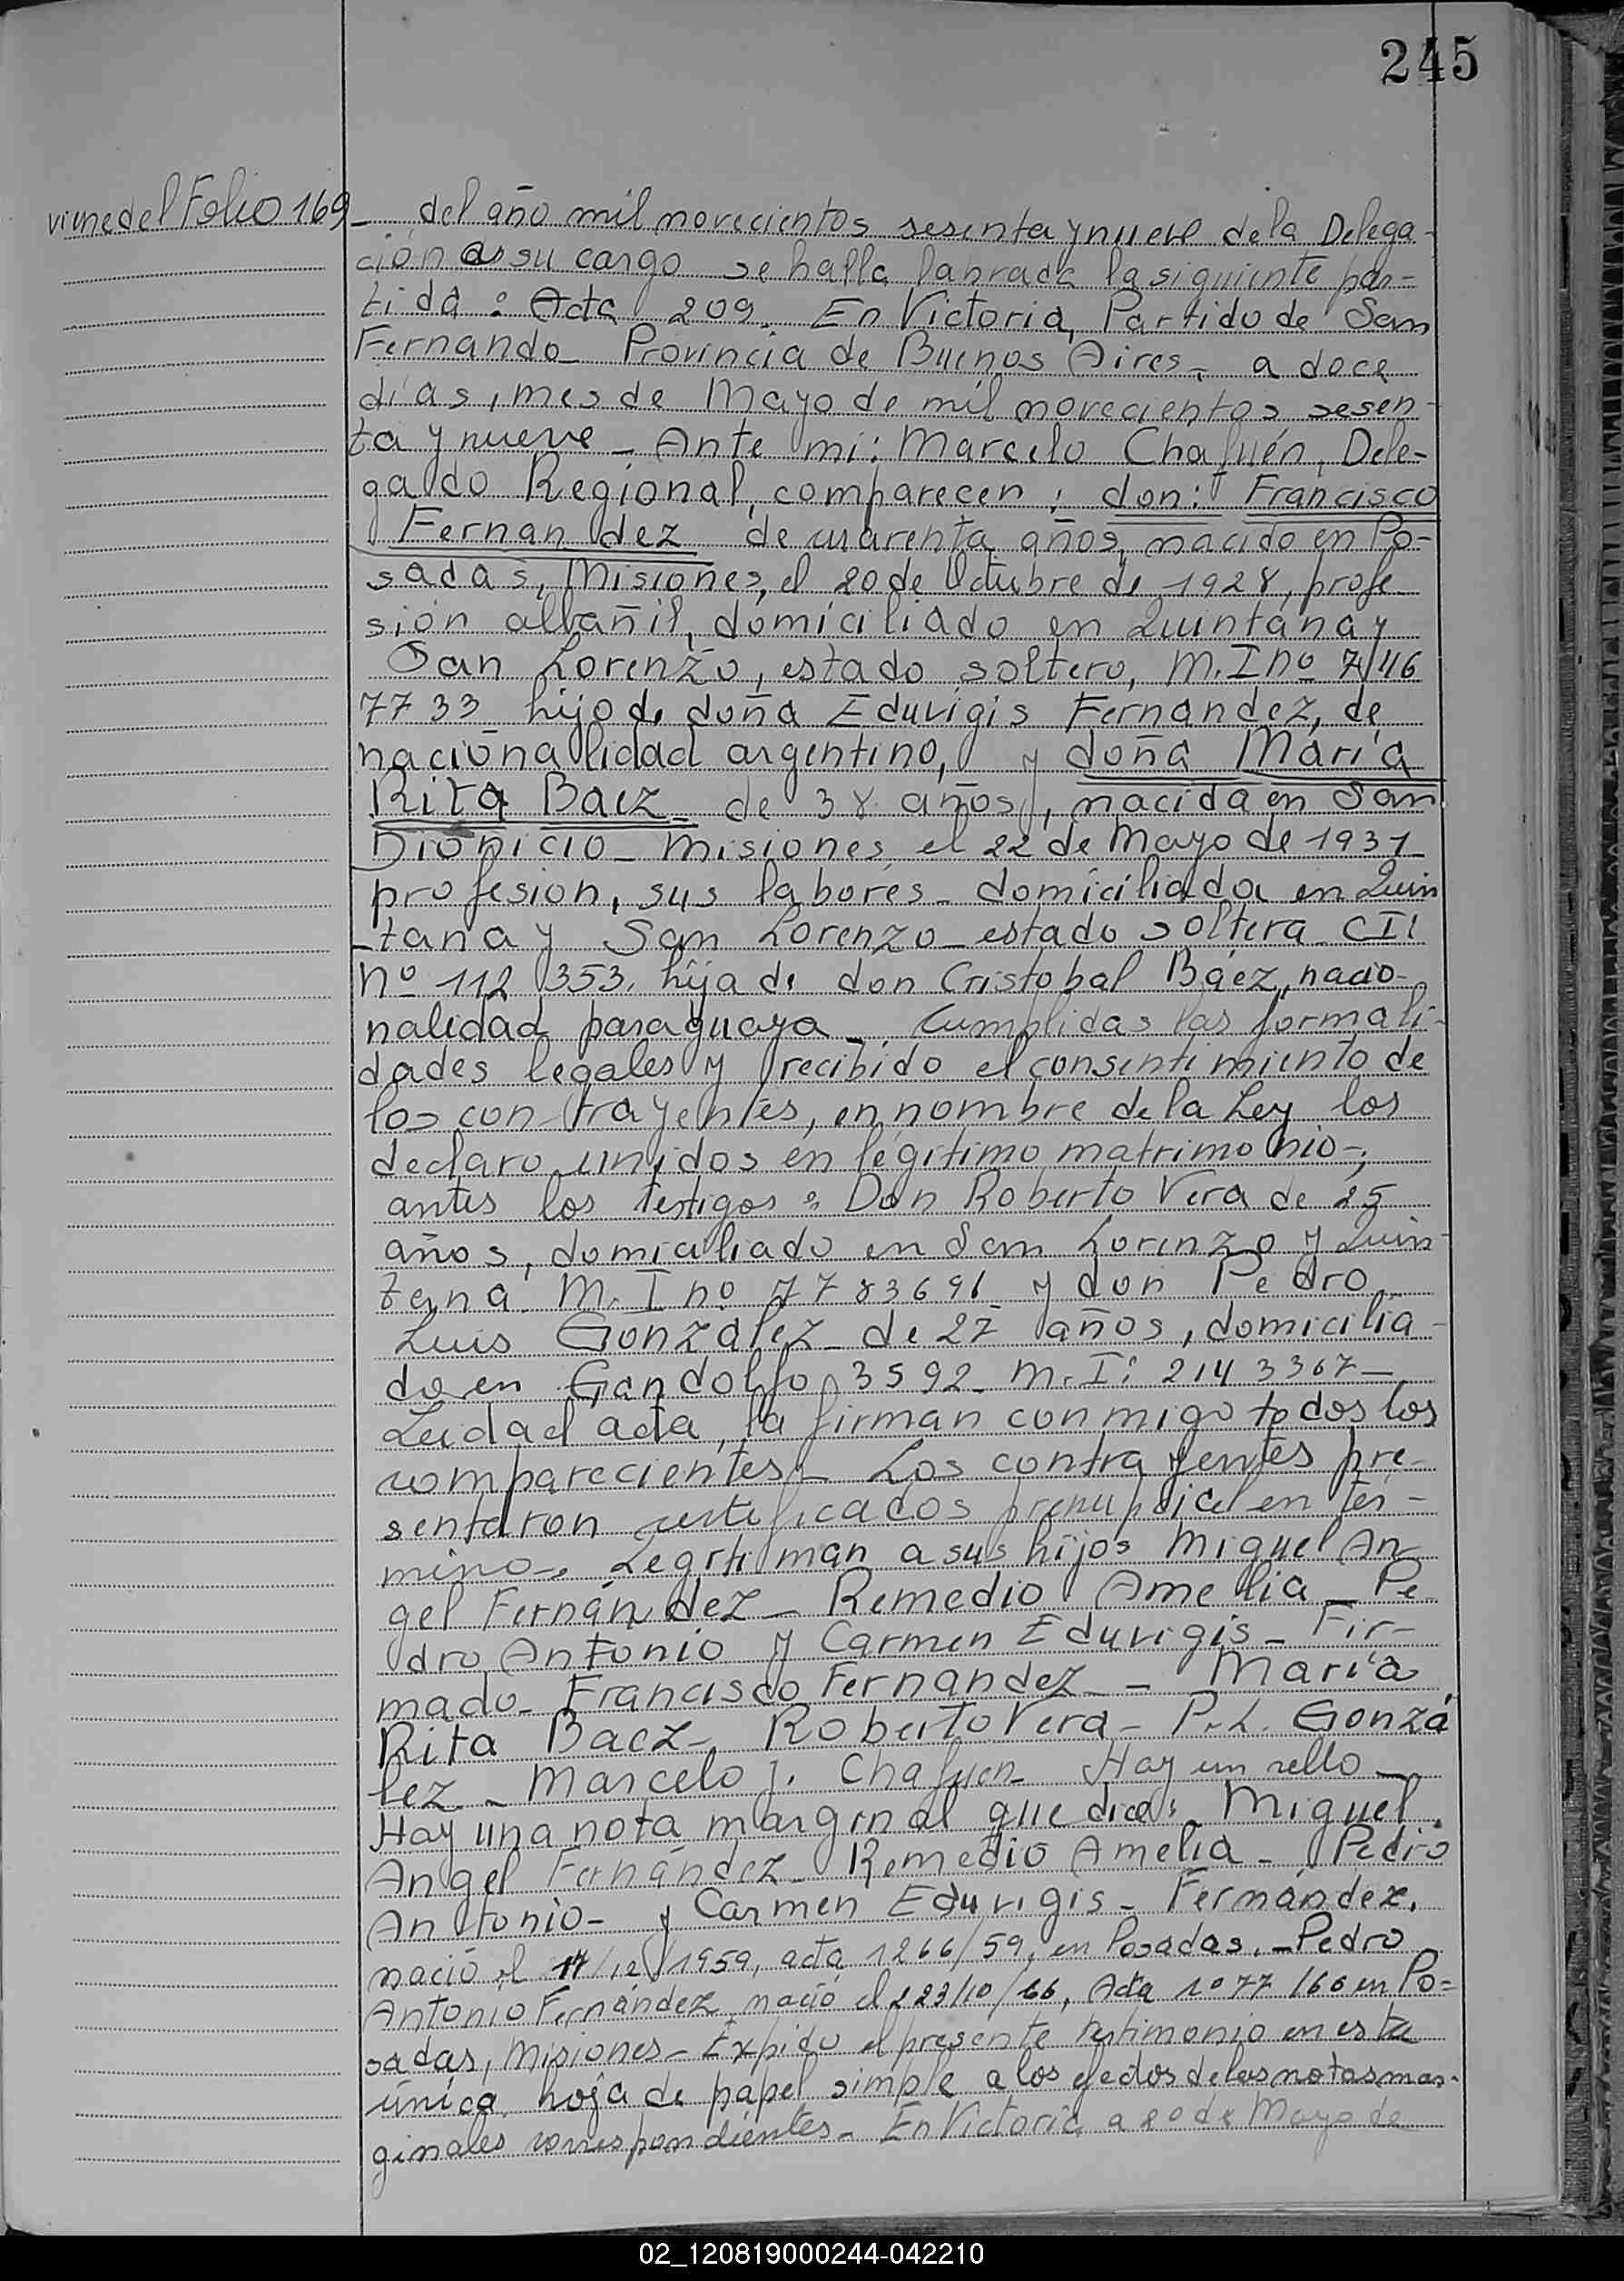 245
viene del Folio 169 _ del año mil novecientos sesenta y nueve de la Delega-
ción a su cargo se halla labrada la siguiente par-
tida: Acta 209. En Victoria, Partido de San
Fernando_ Provincia de Buenos Aires_ a doce
días, mes de Mayo de mil novecientos sesen-
ta y nueve_ Ante mi: Marcelo Chafuén, Dele-
gado Regional, comparecen: don: Francisco
Fernandez de cuarenta años, nacido en Po-
sadas, Misiones, el 20 de Octubre de 1928, profe
sión albañil, domiciliado en Quintana y
San Lorenzo, estado soltero, M. I nº 7/46
7733 hijo de doña Eduvigis Fernandez, de
nacionalidad argentino, y doña María
Rita Baez_ de 38 años, nacida en San
Dionicio_ Misiones, el 22 de Mayo de 1931_
profesion, sus labores_ domiciliada en Quin
-tana y San Lorenzo_ estado soltera CI:
nº 112 353, hija de don Cristobal Báez, nacio-
nalidad paraguaya_ Cumplidas las formali-
dades legales y recibido el consentimiento de
los contrayentes, en nombre de la Ley los
declaro unidos en légitimo matrimonio-;
antes los testigos: Don Roberto Vera de 25
años, domiciliado en San Lorenzo y Quin-
tana M. I nº 7783691 y don Pedro
Luis González_ de 27 años, domicilia-
do en Gandolfo 3592_ M. I: 2143367_
Leida el acta, la firman conmigo todos los
comparecientes_ Los contrayentes pre-
sentaron certificados prenupcial en tér-
mino_. Legitiman a sus hijos Miguel An-
gel Fernández_ Remedio Amelia_ Pe-
dro Antonio y Carmen Eduvigis_ Fir-
mado_ Francisco Fernandez_ _ María
Rita Baez_ Roberto Vera_ P. L. Gonzá
lez_ Marcelo J. Chafuen_ Hay un sello_
Hay una nota marginal que dice: Miguel
Angel Fernández_ Remedio Amelia_ Pedro
Antonio_ y Carmen Eduvigis_ Fernández.
nació el 17/12/1959, acta 1266/59, en Posadas._ Pedro
Antonio Fernández nació el 23/10/66, Acta 1077/66 en Po=
sadas, Misiones_ Expido el presente testimonio en esta
única hoja de papel simple a los efectos de las notas mar-
ginales correspondientes_ En Victoria a 20 de Mayo de
02_120819000244-042210